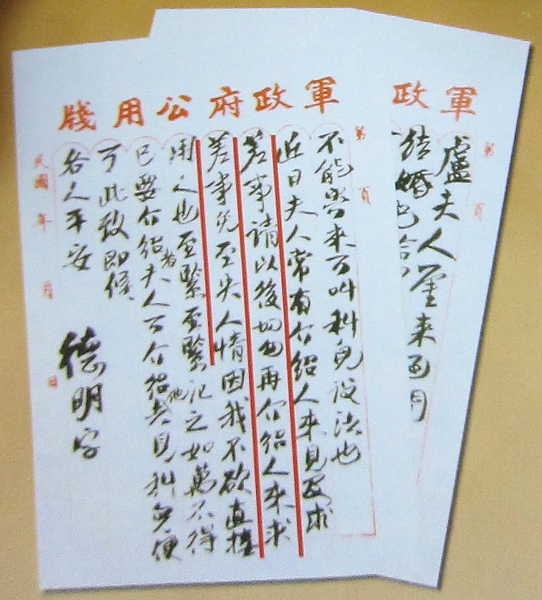 軍政
第 頁
盧夫人鑒來函
結婚
軍政府公用牋
第 頁
不能寄來可叫科兒設法也
近日夫人常有介紹人來見及求
差事請以後切勿再介紹人來求
差事免至失人情因我不欲直接
用人也至緊至緊記之如萬不得
已要介紹者夫人可介紹他去見科兒便
可此致即候
各人平安
德明字
民國 年 月 日